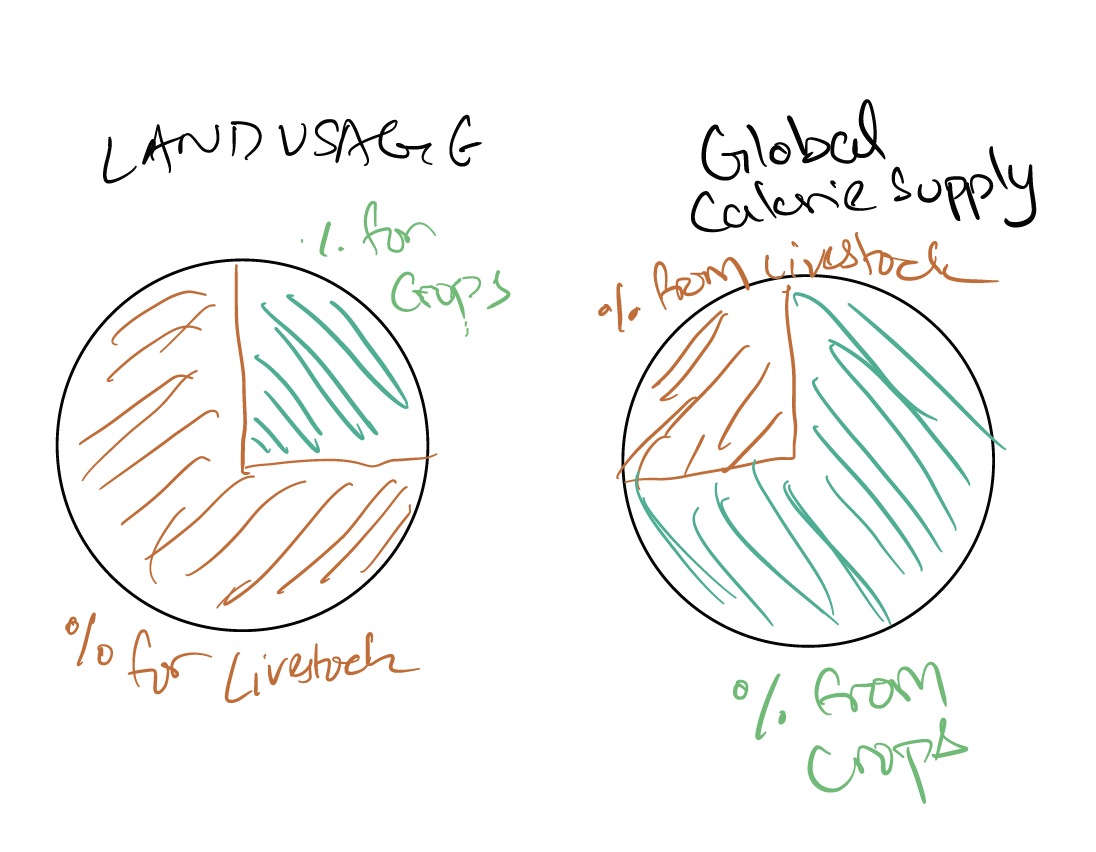 LAND USAGE
% for
Crops
% for Livestock
Global
Calorie Supply
% from Livestock
% from
Crops